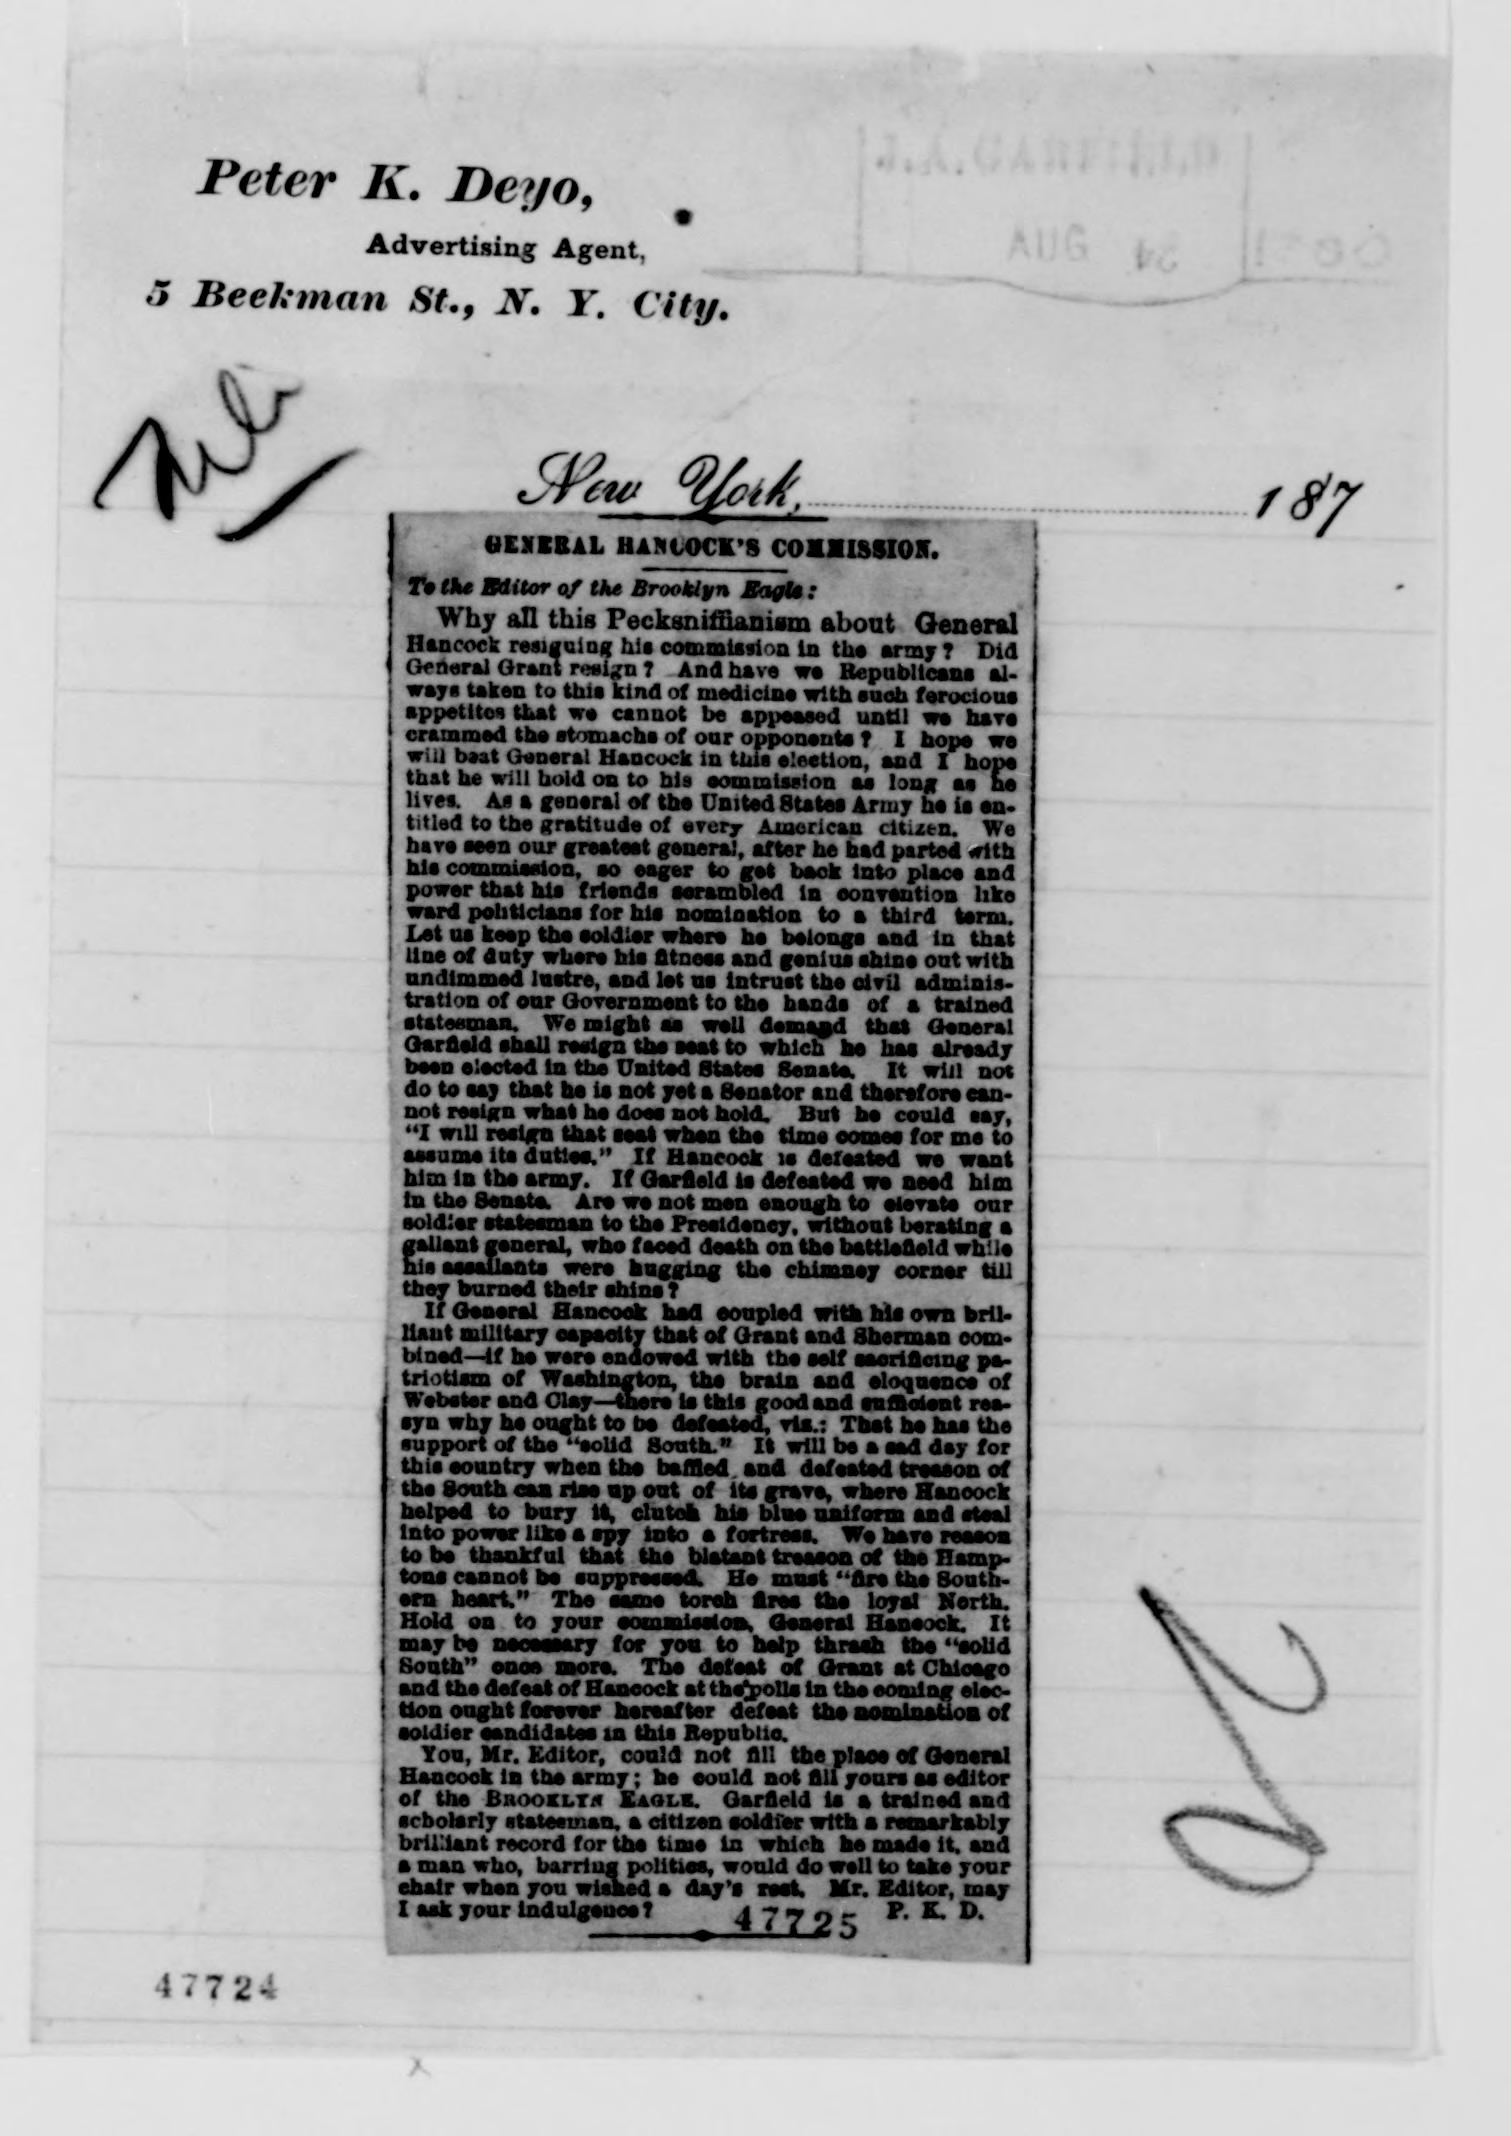 Peter K. Deyo,
Advertising Agent,
5 Beekman St., N. Y. City.
J. A. GARFIELD
AUG 24
New York, 187
GENERAL HANCOCK'S COMMISSION.
To the Editor of the Brooklyn Eagle:
Why all this Pecksniffianism about General
Hancock resigning his commission in the army? Did
General Grant resign? And have we Republicans al-
ways taken to this kind of medicine with such ferocious
appetites that we cannot be appeased until we have
crammed the stomachs of our opponents? I hope we
will beat General Hancock in this election, and I hope
that he will hold on to his commission as long as he
lives. As a general of the United States Army he is en-
titled to the gratitude of every American citizen. We
have seen our greatest general, after he had parted with
his commission, so eager to get back into place and
power that his friends scrambled in convention like
ward politicians for his nomination to a third term.
Let us keep the soldier where he belongs and in that
line of duty where his fitness and genius shine out with
undimmed lustre, and let us intrust the civil adminis-
tration of our Government to the hands of a trained
statesman. We might as well demand that General
Garfield shall resign the seat to which he has already
been elected in the United States Senate. It will not
do to say that he is not yet a Senator and therefore can-
not resign what he does not hold. But he could say,
"I will resign that seat when the time comes for me to
assume its duties." If Hancock is defeated we want
him in the army. If Garfield is defeated we need him
in the Senate. Are we not men enough to elevate our
soldier statesman to the Presidency, without berating a
gallant general, who faced death on the battlefield while
his assailants were hugging the chimney corner till
they burned their shins?
If General Hancock had coupled with his own bril-
liant military capacity that of Grant and Sherman com-
bined—if he were endowed with the self sacrificing pa-
triotism of Washington, the brain and eloquence of
Webster and Clay—there is this good and sufficient rea-
syn why he ought to be defeated, viz.: That he has the
support of the "solid South." It will be a sad day for
this country when the baffled and defeated treason of
the South can rise up out of its grave, where Hancock
helped to bury it, clutch his blue uniform and steal
into power like a spy into a fortress. We have reason
to be thankful that the blatant treason of the Hamp-
tons cannot be suppressed. He must "fire the South-
ern heart." The same torch fires the loyal North.
Hold on to your commission, General Hancock. It
may be necessary for you to help thrash the "solid
South" once more. The defeat of Grant at Chicago
and the defeat of Hancock at the polls in the coming elec-
tion ought forever hereafter defeat the nomination of
soldier candidates in this Republic.
You, Mr. Editor, could not fill the place of General
Hancock in the army; he could not fill yours as editor
of the BROOKLYN EAGLE. Garfield is a trained and
scholarly statesman, a citizen soldier with a remarkably
brilliant record for the time in which he made it, and
a man who, barring politics, would do well to take your
chair when you wished a day's rest. Mr. Editor, may
I ask your indulgence? P. K. D.
47725
47724